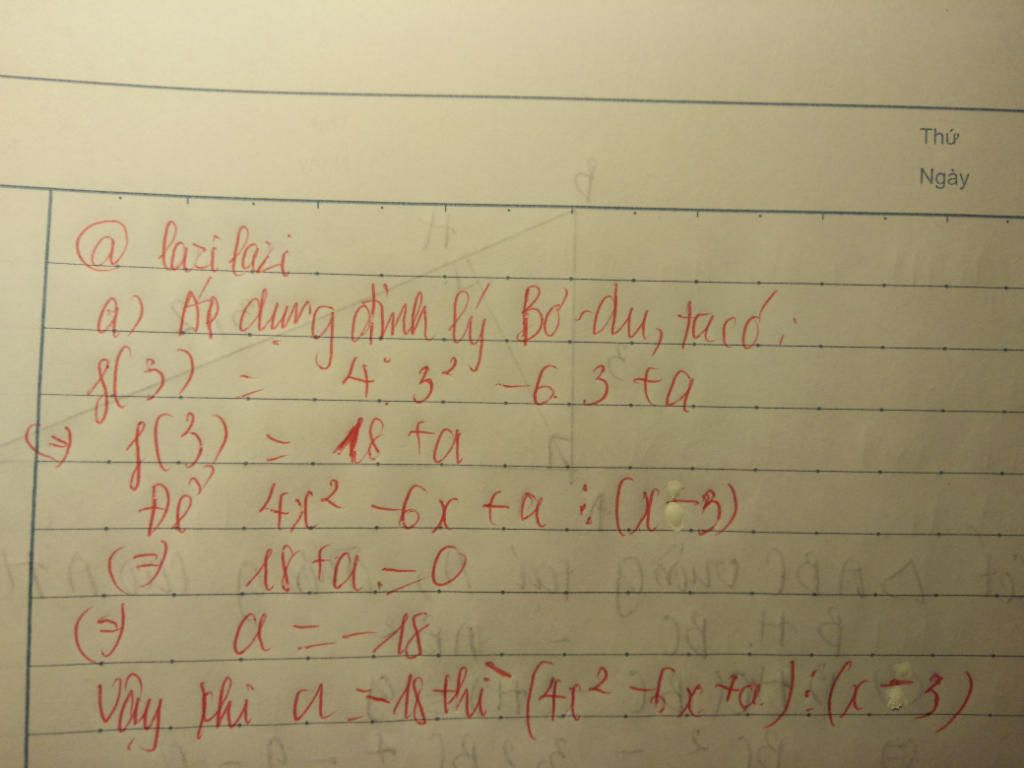 Thứ
Ngày
@ lazi lazi
a) Áp dụng định lý Bơ-du, ta có:
f(3) = 4. 3² - 6. 3 + a
(=) f(3) = 18 + a
Để 4x² - 6x + a ⋮ (x - 3)
(=) 18 + a = 0
(=) a = -18
Vậy khi a = -18 thì (4x² - 6x + a) ⋮ (x - 3)